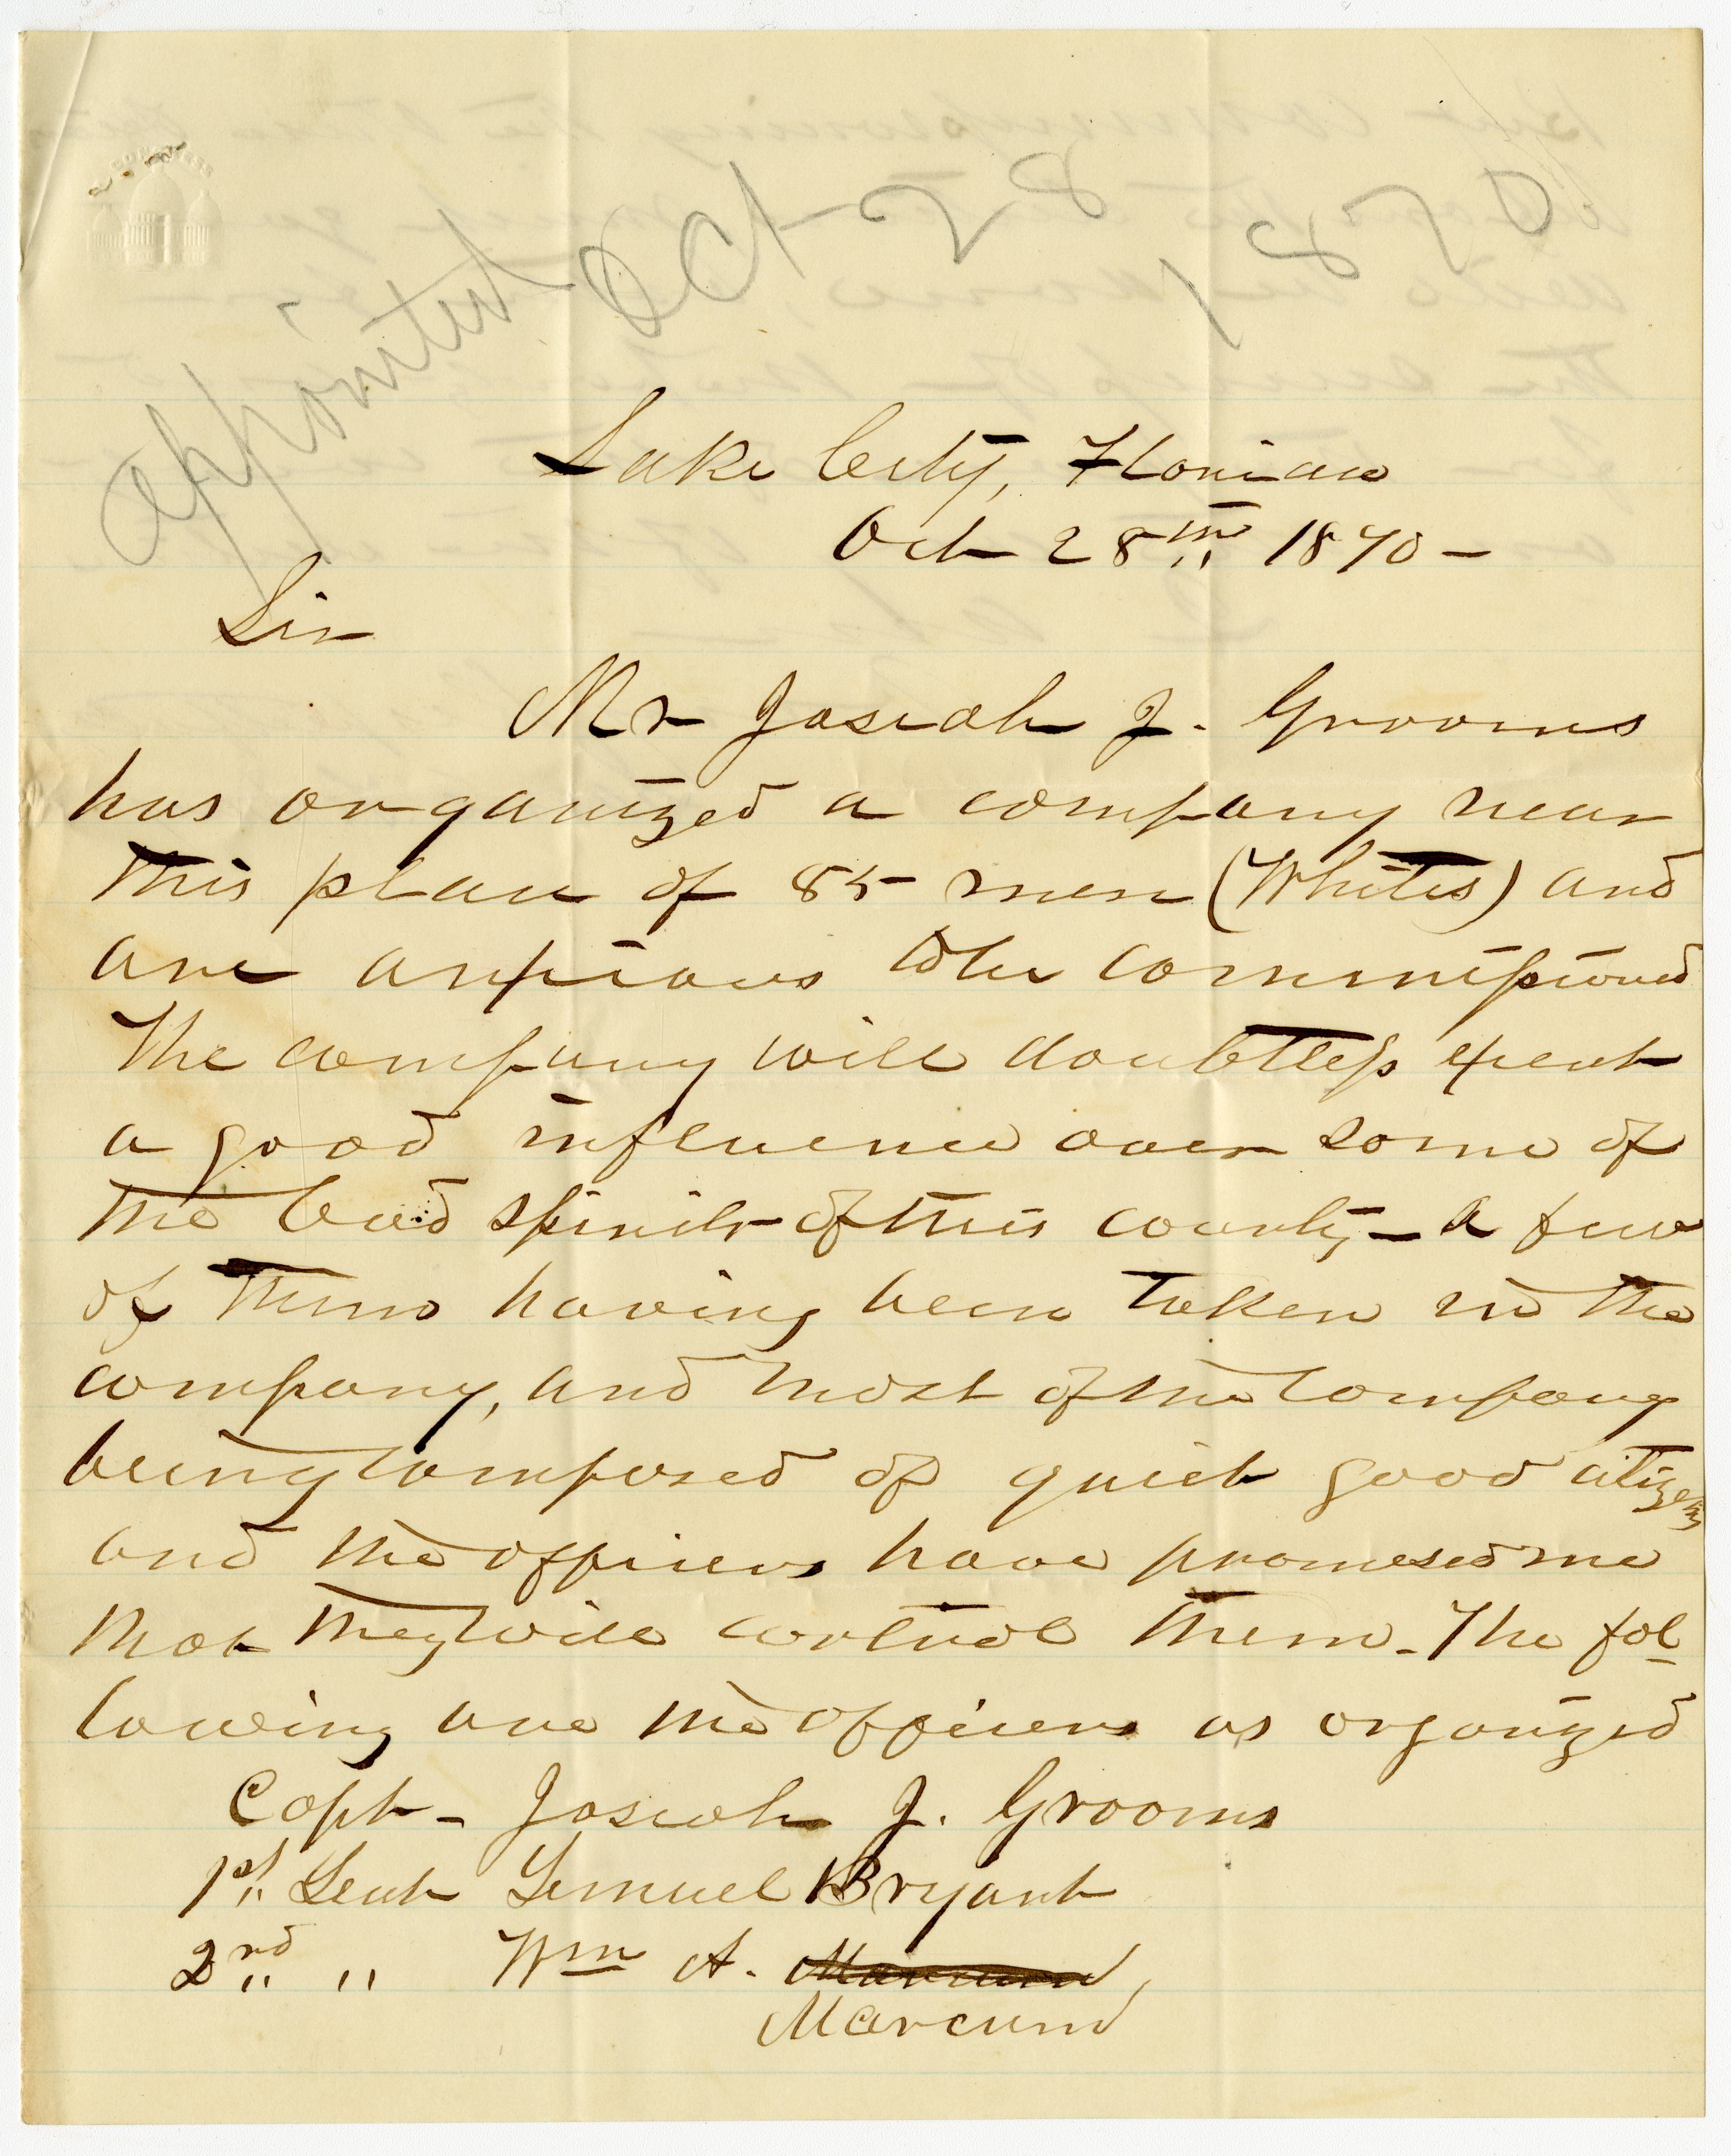 appointed Oct 29
1870
Lake City, Florida
Oct 28th 1870 -
Sir
Mr Josiah J. Grooms
has organized a company near
this place of 85 men (Whites) and
are anxious to be commissioned
The company will doubtless exert
a good influence over some of
the bad spirits of this county - a few
of them having been taken in the
company, and most of the company
being composed of quiet good citizens
and the officers have promised me
that they will control them. The fol
lowing are the officers as organized
Capt - Josiah J. Grooms
1st Leut Lemuel Bryant
2nd " Wm A. Marcum,
Marcum